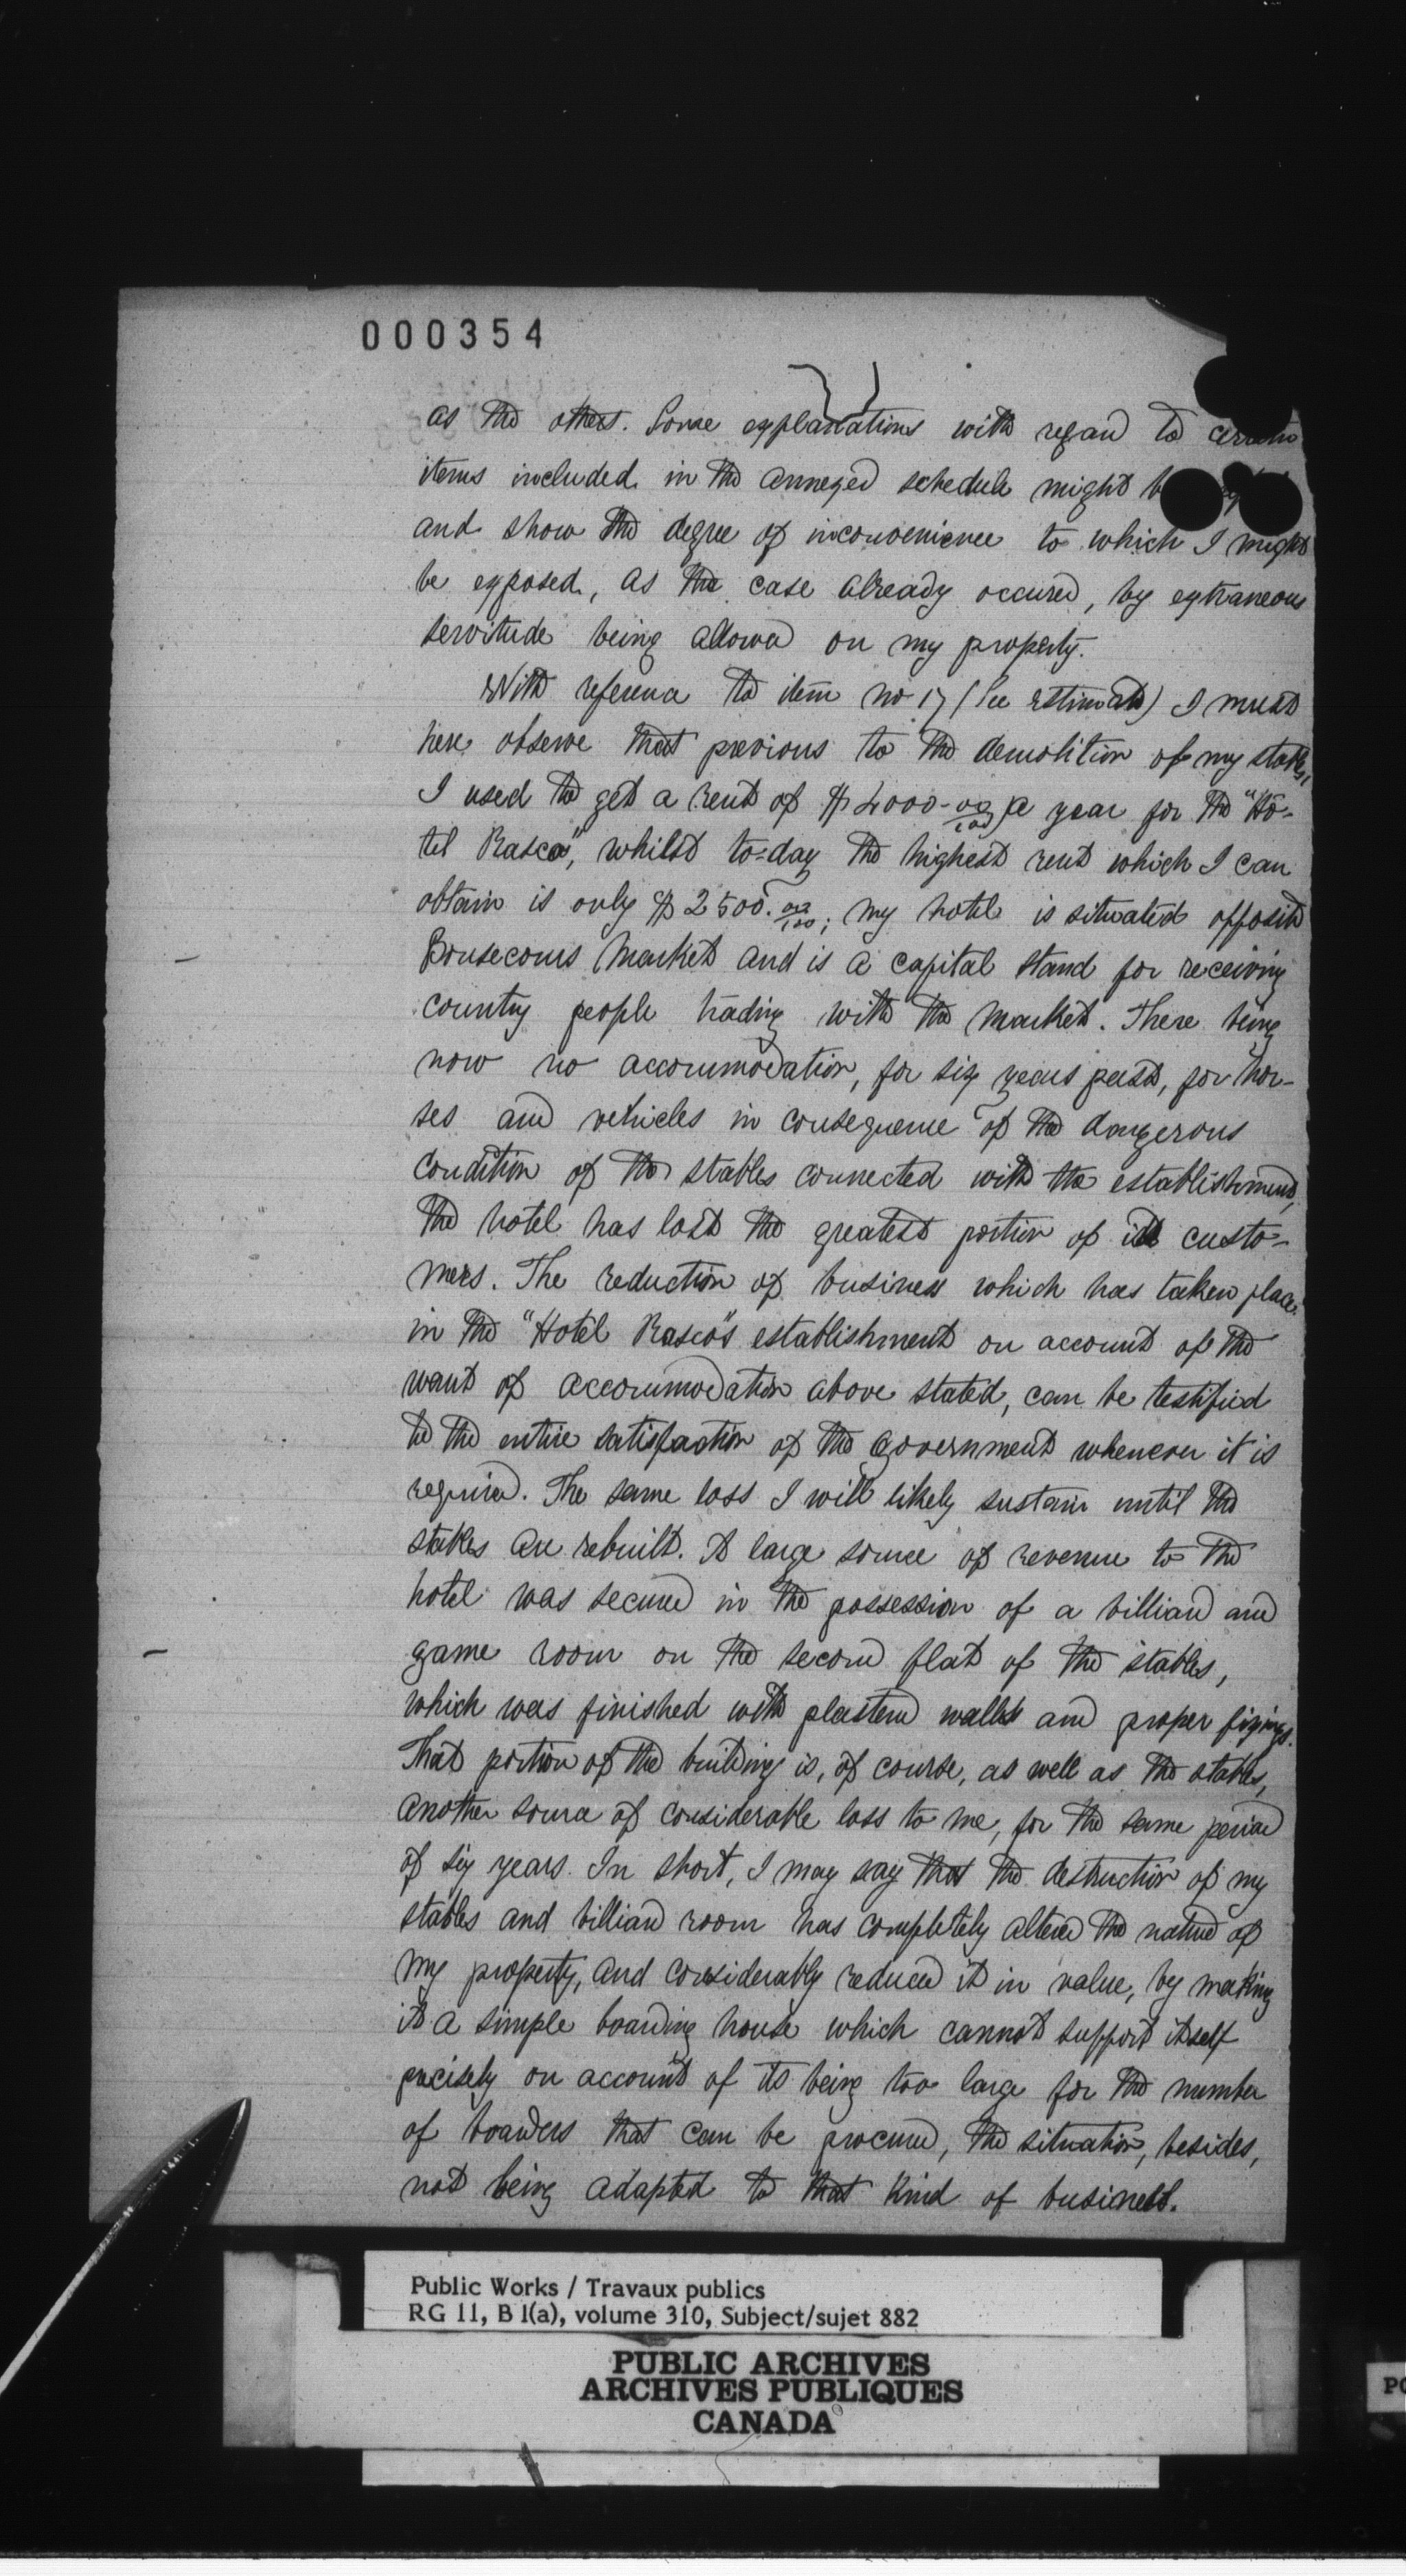 000354
as the others. Some explanations with regard to certain
items included in the annexed schedule might
and show the degree of inconvenience to which I might
be exposed, as the case already occured, by extraneous
servitude being allowed on my property.
With reference to item no 17 (See estimate) I must
here observe that previous to the demolition of my stables,
I used to get a rent of $4000-00/100 pr year for the "Ho-
tel Rasco", whilst to-day the highest rent which I can
obtain is only $2500.00/100; my hotel is situated opposite
Bonsecours Market and is a capital stand for receiving
country people trading with the market. There being
now no accommodation, for six years past, for hor-
ses and vehicles in consequence of the dangerous
condition of the stables connected with the establishment,
the hotel has lost the greatest portion of its custo-
mers. The reduction of business which has taken place
in the "Hotel Rasco"s establishment on account of the
want of accommodation above stated, can be testified
to the entire satisfaction of the Government whenever it is
required. The same loss I will likely sustain until the
stables are rebuilt. A large source of revenue to the
hotel was secured in the possession of a billiard and
game room on the second flat of the stables,
which was finished with plastered walls and proper fixings.
That portion of the building is, of course, as well as the stables,
another source of considerable loss to me, for the same period
of six years. In short, I may say that the destruction of my
stables and billiard room has completely altered the nature of
my property, and considerably reduced it in value, by making
it a simple boarding house which cannot support itself
precisely on account of its being too large for the number
of boarders that can be procured, the situation, besides,
not being adapted to that kind of business.
Public Works / Travaux publics
RG 11, B 1(a), volume 310, Subject/sujet 882
PUBLIC ARCHIVES
ARCHIVES PUBLIQUES
CANADA